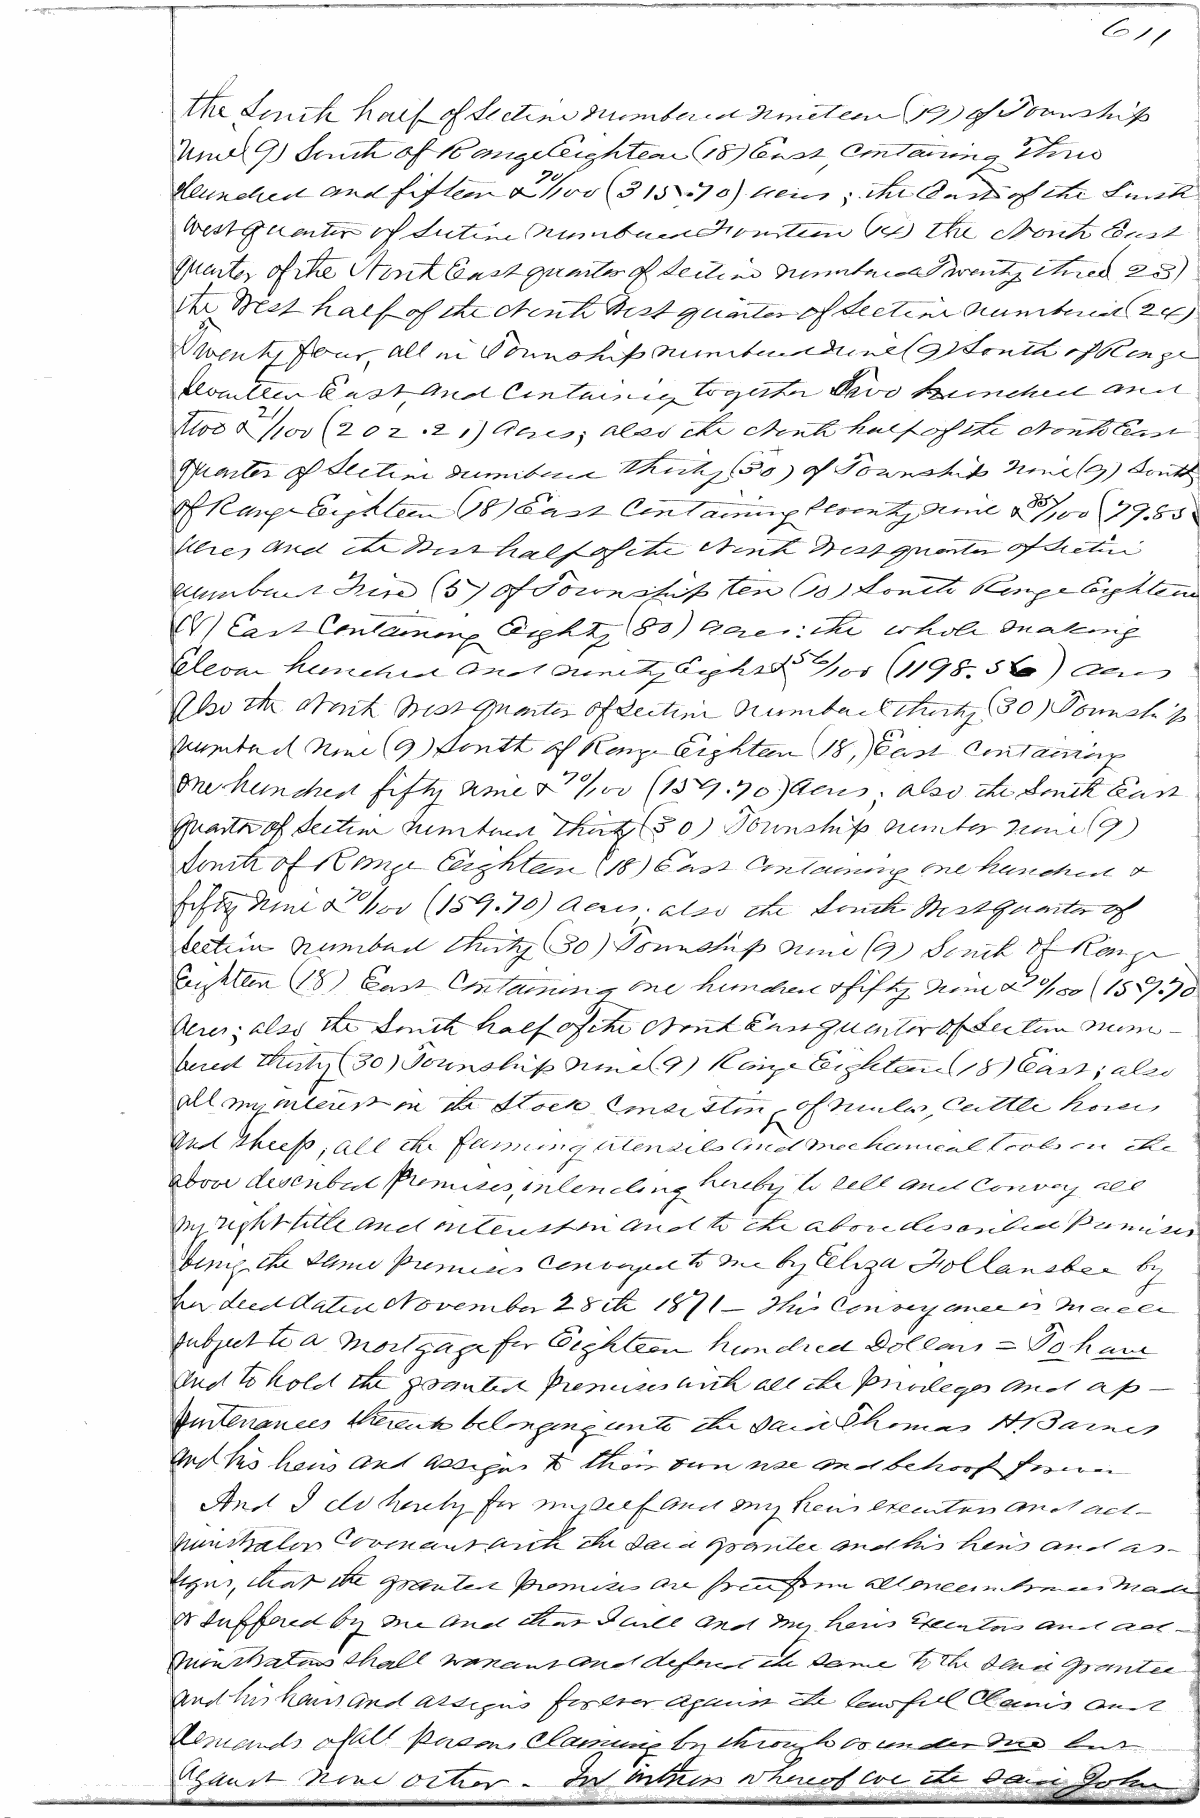 611
the South half of Section numbered nineteen (19) of Township
nine (9) South of Range Eighteen (18) East, containing Three
hundred and fifteen & 70/100 (315.70) acres; the East of the South
west quarter of Section numbered Fourteen (14) the North East
quarter of the North East quarter of Section numbered Twenty three (23)
the West half of the North West quarter of Section numbered (24)
Twenty four, all in Township numbered nine (9) South of Range
Seventeen East, and containing together Two hundred and
two & 21/100 (202.21) Acres; also the North half of the North East
quarter of Section numbered thirty (30) of Township nine (9) South
of Range Eighteen (18) East Containing Seventy nine & 85/100 (79.85
Acres and the West half of the North West quarter of Section
numbered Five (5) of Township ten (10) South Range Eighteen
(18) East Containing Eighty (80) acres: the whole making
Eleven hundred and ninety Eight & 56/100 (1198.56) acres
Also the North West quarter of Section numbered thirty (30) Township
numbered nine (9) South of Range Eighteen (18,) East containing
one hundred fifty nine & 70/100 (159.70) Acres; also the South East
quarter of Section numbered Thirty (30) Township number nine (9)
South of Range Eighteen (18) East Containing one hundred &
fifty nine & 70/100 (159.70) acres. also the South West quarter of
Section numbered thirty (30) Township nine (9) South of Range
Eighteen (18) East Containing one hundred & fifty nine & 70/100 (159.70
Acres; also the South half of the North East quarter of Section num-
bered thirty (30) Township nine (9) Range Eighteen (18) East; also
all my interest in the Stock Consisting of mules, Cattle horses
and sheep, all the farming utensils and mechanical tools on the
above described Premises, intending hereby to sell and convey all
my right title and interest in and to the above described Premises
being the same Premises conveyed to me by Eliza Follansbee by
her deed dated November 28th 1871 - This conveyance is made
subject to a Mortgage for Eighteen hundred Dollars = To have
and to hold the granted Premises with all the Privileges and ap-
purtenances thereto belonging unto the said Thomas H. Barnes
and his heirs and assigns to their own use and behoof forever
And I do hereby for myself and my heirs executors and ad-
ministrators Covenant with the said grantee and his heirs and as-
signs, that the granted Premises are free from all encumbrances made
or suffered by me and that I will and my heirs Executors and ad-
ministrators shall warrant and defend the same to the said grantee
and his heirs and assigns forever against the lawful Claims and
demands of all Persons Claiming by through or under me but
against none other. In witness whereof we the said John